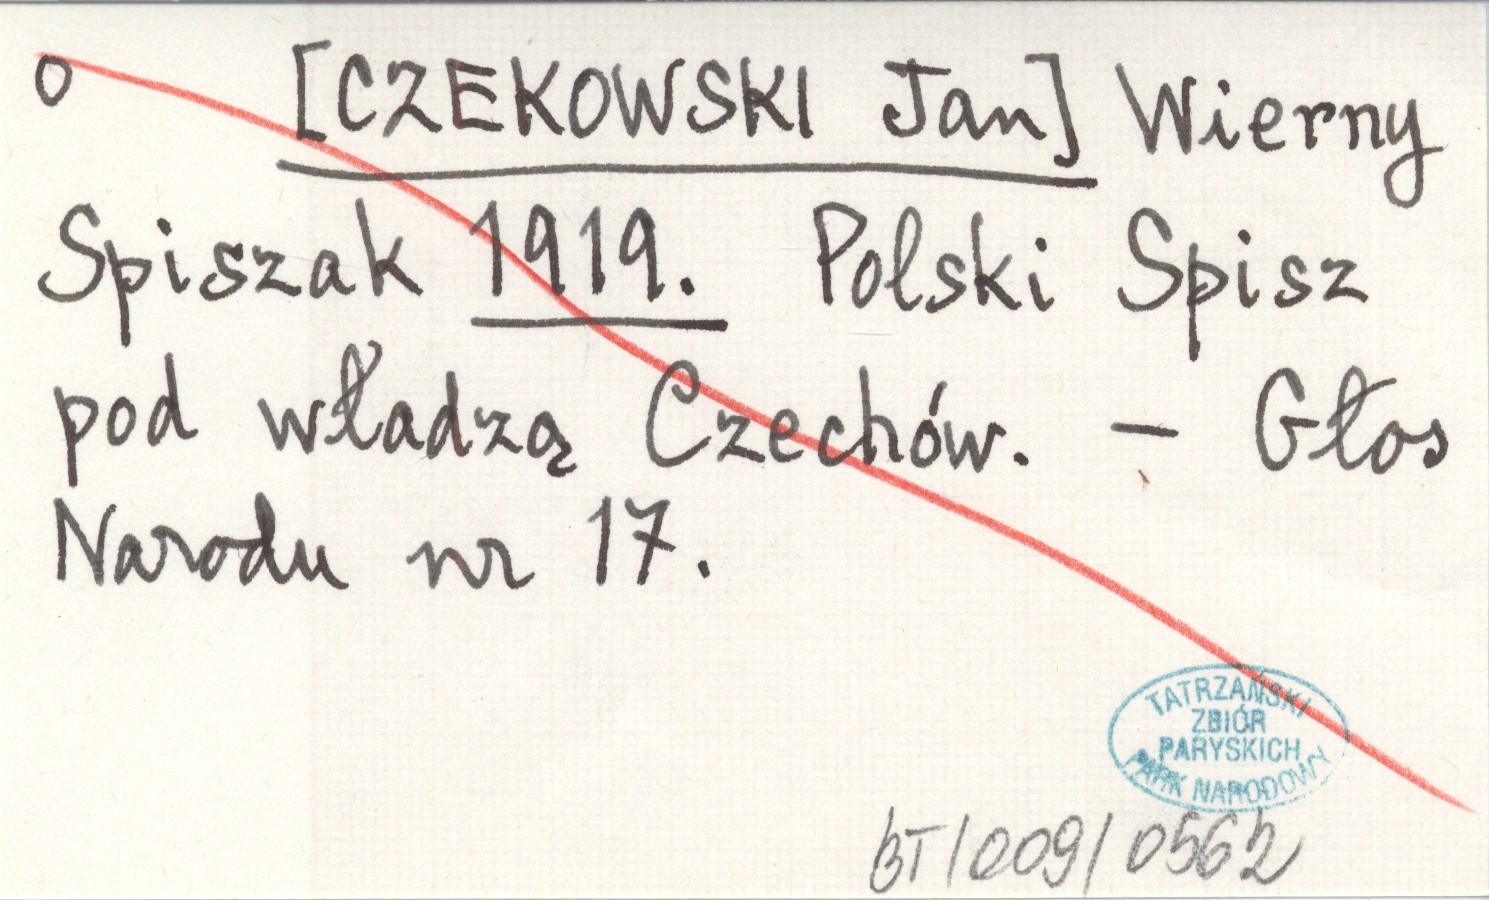 o [CZEKOWSKI Jan] Wierny
Spiszak 1919. Polski Spisz
pod władzą Czechów. — Głos
Narodu nr 17.
TATRZAŃSKI
ZBIÓR
PARYSKICH
PARK NARODOWY
BT/009/0562